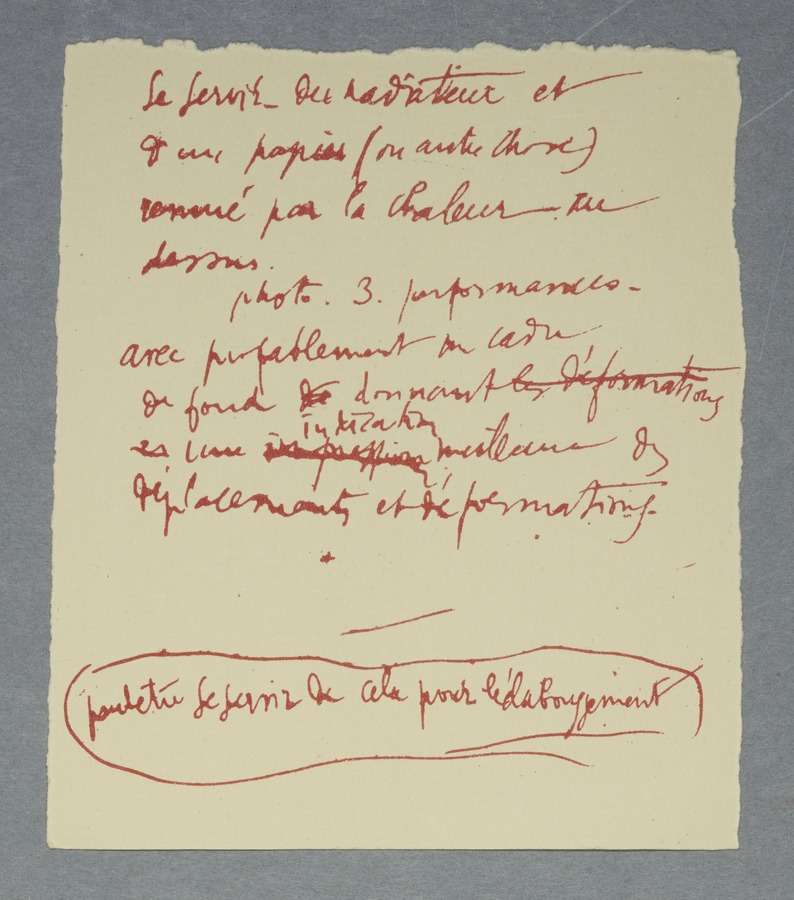 Se servir du radiateur et
d'un papier (ou autre chose)
remué par la chaleur au
dessus.
photo. 3. performances-
avec probablement un cadre
de fond de donnant les déformations
une indication impression meilleure des
déplacements et déformations-
peut être se servir de cela pour l'éclaboussement